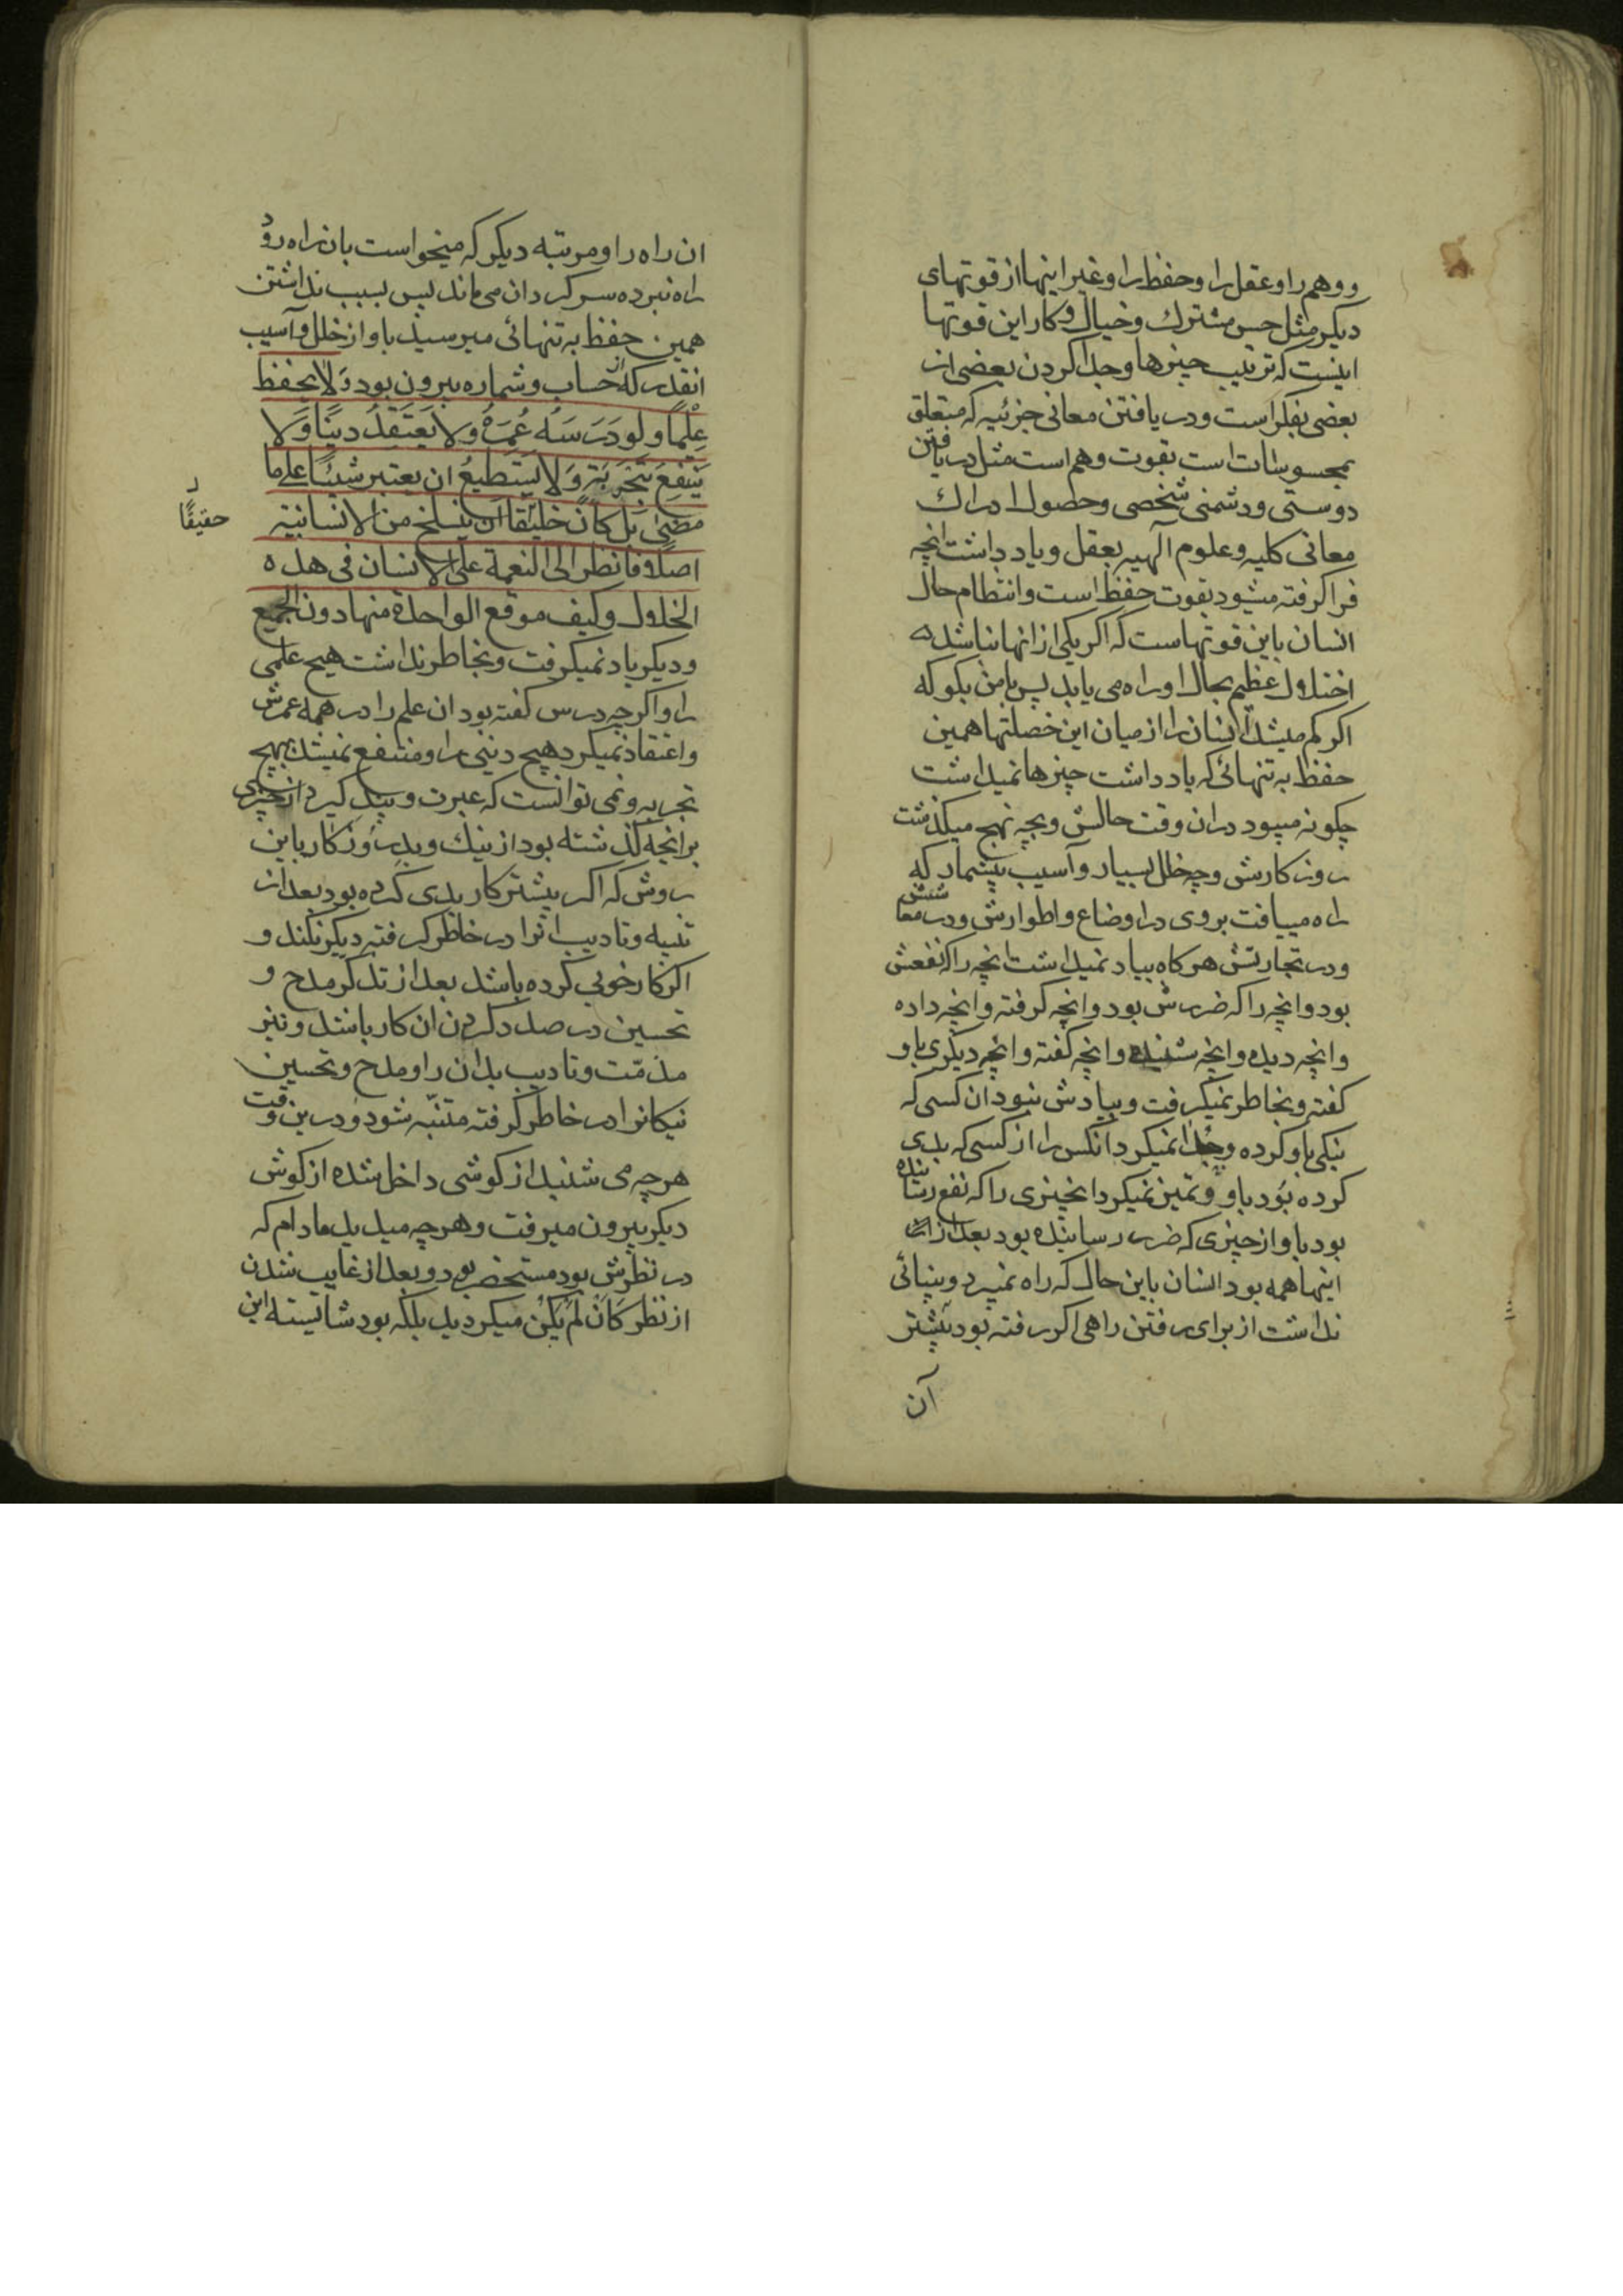 ووهم را وعقل را وحفظ را وغیر اینها از قوتهای
دیکر مثل حس مشترك وخیال وکار این قوتها
اینست که ترتیب چیزها وجدا کردن بعضی از
بعضی بفکر است ودر یافتن معانی جزئیه که متعلق
بمحسوسات است بقوت وهم است مثل دریافتن
دوستی ودشمنی شخصی وحصول ادراك
معانی کلیه وعلوم الهیه بعقل ویاد داشت انچه
فرا کرفته میشود بقوت حفظ است وانتظام حال
انسان باین قوتهاست که اکر یکی از انها نباشد
اختلال عظیم بحال او راه می یابد پس با من بکو که
اکر کم میشد انسان را از میان این خصلتها همین
حفظ به تنهائی که یاد داشت چیزها نمیداشت
چکونه میبود دران وقت حالش وبچه نهج میکذشت
روز کارش وچه خلل بسیار وآسیب بیشمار که
راه مییافت بروی در اوضاع واطوارش ودر معاشش
ودر تجارتش هر کاه بیاد نمیداشت انچه را که نفعش
بود وانچه را که ضررش بود وانچه کرفته وانچه داده
وانچه دیده وانچه شنیده وانچه کفته وانچه دیکری باو
کفته وبخاطر نمیکرفت وبیادش نبود ان کسی که
نیکی باو کرده وجدا نمیکرد انکس را از کسی که بدی
کرده بود باو وتمیز نمیکرد انچیزی را که نفع رساننده
بود باو از چیزی که ضرر رساینده بود بعد از
اینها همه بود انسان باین حال که راه نمیبرد وبینائی
نداشت از برای رفتن راهی اکر رفته بود پیشتر
آن
ان راه را ومرتبه دیکر که میخواست بان راه رود
راه نبرده سرکردان می ماند پس بسبب نداشتن
همین حفظ به تنهائی میرسید باو از خلل وآسیب
انقدر که از حساب وشماره بیرون بود وَلا یحفظ
عِلْمًا ولَو دَرَسَهُ عُمَرَهُ ولا یَعتَقِدُ دینًا وَلا
یَنتَفِعَ بتَجَرِبَةٍ وَلا یَستَطیعُ ان یعتبر شیئًا علی ما
مضیٰ بَل کَانَ خلیقًا ان ینسلخ من الانسانیة
حقیقًا
اصلا فانظر الی النعمة علی الانسان فی هذه
الخلال وکیف موقع الواحدة منها دون الجمیع
ودیکر یاد نمیکرفت وبخاطر نداشت هیچ علمی
را واکرچه درس کفته بود ان علم را در همه عمرش
واعتقاد نمیکرد هیچ دینی را ومنتفع نمیشد بهیچ
تجربه ونمی توانست که عبرت وپند کیرد از چیزی
برانچه کذشته بود از نیك وبد روز کار باین
روش که اکر پیشتر کار بدی کرده بود بعد از
تنبیه وتادیب انرا در خاطر کرفته دیکر نکند و
اکر کار خوبی کرده باشد بعد از تذکر مدح و
تحسین در صدد کردن ان کار باشد ونیز
مذمّت وتادیب بدان را ومدح وتحسین
نیکانرا در خاطر کرفته متنبّه شود ودرین وقت
هر چه می شنید از کوشی داخل شده از کوش
دیکر بیرون میرفت وهر چه میدید مادام که
در نظرش بود مستحضر بود وبعد از غایب شدن
از نظر کَاَن لَم یَکُن میکردید بلکه بود شایسته این